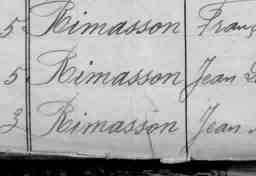 5 Rimasson Franç
5 Rimasson Jean
3 Rimasson Jean